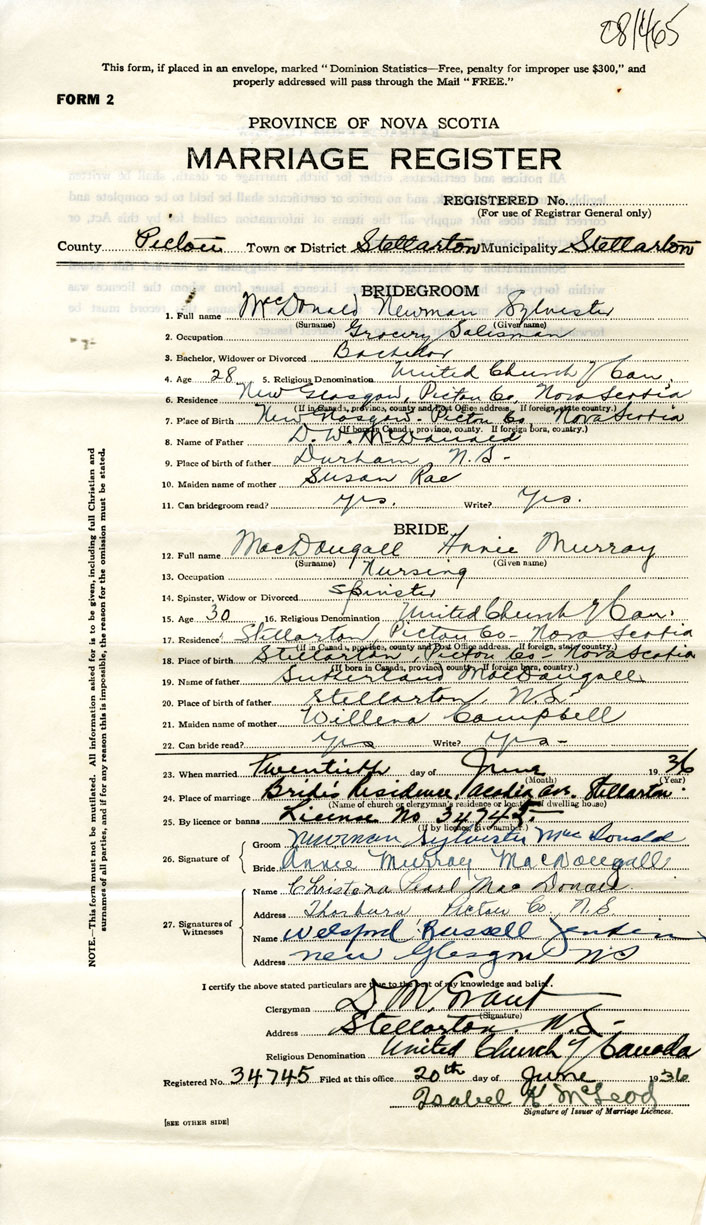 C8/465
This form, if placed in an envelope, marked "Dominion Statistics—Free, penalty for improper use $300," and
properly addressed will pass through the Mail "FREE."
FORM 2
PROVINCE OF NOVA SCOTIA
MARRIAGE REGISTER
REGISTERED No.
(For use of Registrar General only)
County Pictou Town or District Stellarton Municipality Stellarton
BRIDEGROOM
1. Full name McDonald Newman Sylvester
(Surname) (Given name)
2. Occupation Grocery Salesman
3. Bachelor, Widower or Divorced Bachelor
4. Age 28 5. Religious Denomination United Church of Can.
6. Residence New Glasgow, Pictou Co Nova Scotia
(If in Canada, province, county and Post Office address. If foreign, state country.)
7. Place of Birth New Glasgow. Pictou Co Nova Scotia
(If born in Canada, province, county. If foreign born, country.)
8. Name of Father D. W. McDonald
9. Place of birth of father Durham N.S.
10. Maiden name of mother Susan Rae
11. Can bridegroom read? yes. Write? yes.
BRIDE
12. Full name MacDougall Annie Murray
(Surname) (Given name)
13. Occupation Nursing
14. Spinster, Widow or Divorced Spinster
15. Age 30 16. Religious Denomination United Church of Can.
17. Residence Stellarton, Pictou Co- Nova Scotia
(If in Canada, province, county and Post Office address. If foreign, state country.)
18. Place of birth Stellarton, Pictou Co- Nova Scotia
(If born in Canada, province, county. If foreign born, country.)
19. Name of father Sutherland MacDougall
20. Place of birth of father Stellarton, N.S-
21. Maiden name of mother Willena Campbell
22. Can bride read? yes Write? yes-
23. When married Twentieth day of June 1936
(Month) (Year)
24. Place of marriage Bride's Residence, Acadia Ave. Stellarton
(Name of church or clergyman's residence or location of dwelling house)
25. By licence or banns License No 34745.
(If by licence, give number.)
26. Signature of
Groom Newman Sylvester MacDonald
Bride Annie Murray MacDougall
27. Signatures of Witnesses
Name Christena Pearl MacDonald
Address Thorburn Pictou Co, N.S.
Name Welsford Russell Jenkins
Address New Glasgow N S
I certify the above stated particulars are true to the best of my knowledge and belief.
Clergyman D. M. Grant
(Signature)
Address Stellarton. N.S-
Religious Denomination United Church of Canada
Registered No. 34745 Filed at this office 20th day of June 1936
Isabel K McLeod
Signature of Issuer of Marriage Licences.
[SEE OTHER SIDE]
NOTE.—This form must not be mutilated. All information asked for is to be given, including full Christian and
surnames of all parties, and if for any reason this is impossible, the reason for the omission must be stated.